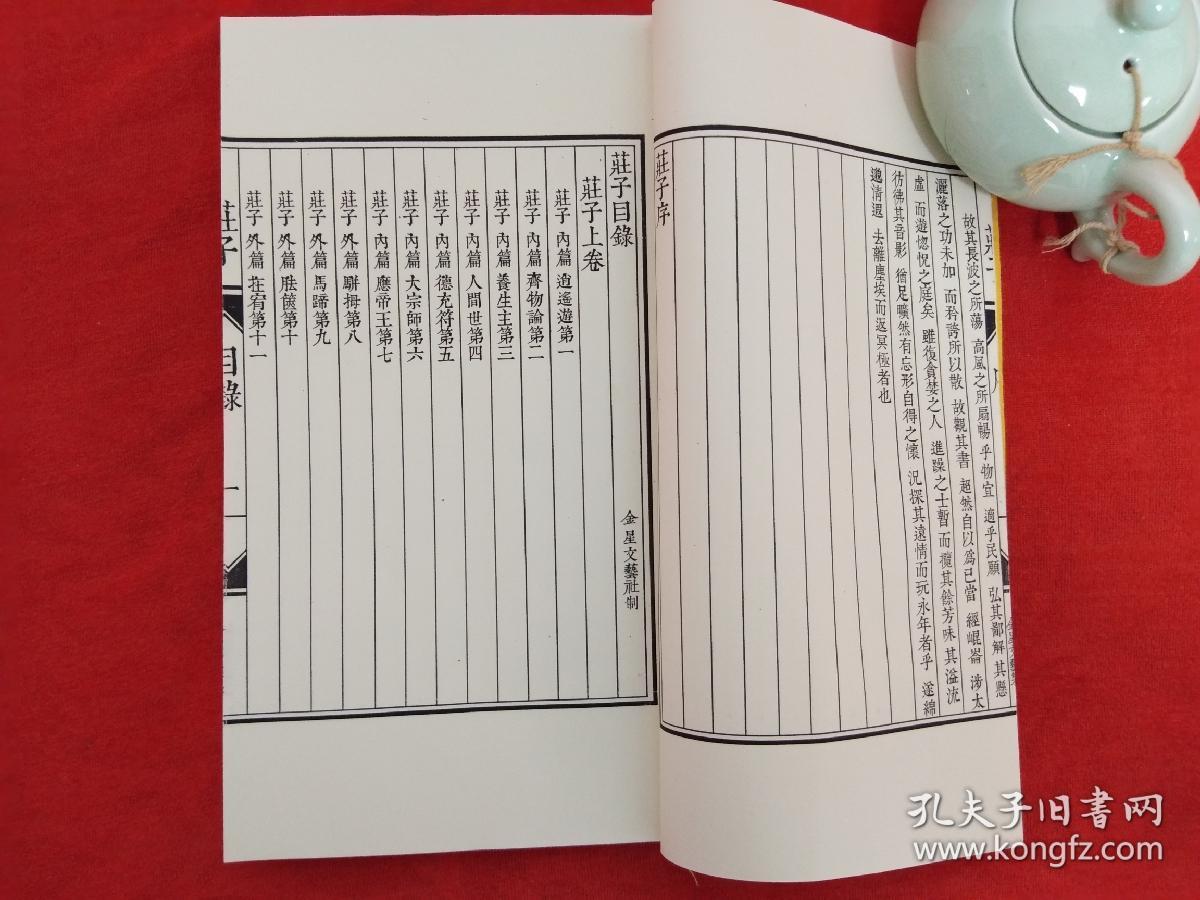 故其長波之所蕩 高風之所扇暢乎物宜 適乎民願 弘其鄙解 其懸
灑落之功未加 而矜誇所以散 故觀其書 超然自以爲已當 經崐崙 涉太
虛 而遊惚怳之庭矣 雖復貪婪之人 進躁之士暫而攬其餘芳味其溢流
彷彿其音影 猶足曠然有忘形自得之懷 況探其遠情而玩永年者乎 遂綿
邈清遐 去離塵埃而返冥極者也
莊子序
莊子目錄
金星文藝社制
莊子上卷
莊子 內篇 逍遙遊第一
莊子 內篇 齊物論第二
莊子 內篇 養生主第三
莊子 內篇 人間世第四
莊子 內篇 德充符第五
莊子 內篇 大宗師第六
莊子 內篇 應帝王第七
莊子 外篇 駢拇第八
莊子 外篇 馬蹄第九
莊子 外篇 胠篋第十
莊子 外篇 在宥第十一
莊子 目錄 一
孔夫子旧书网
www.kongfz.com